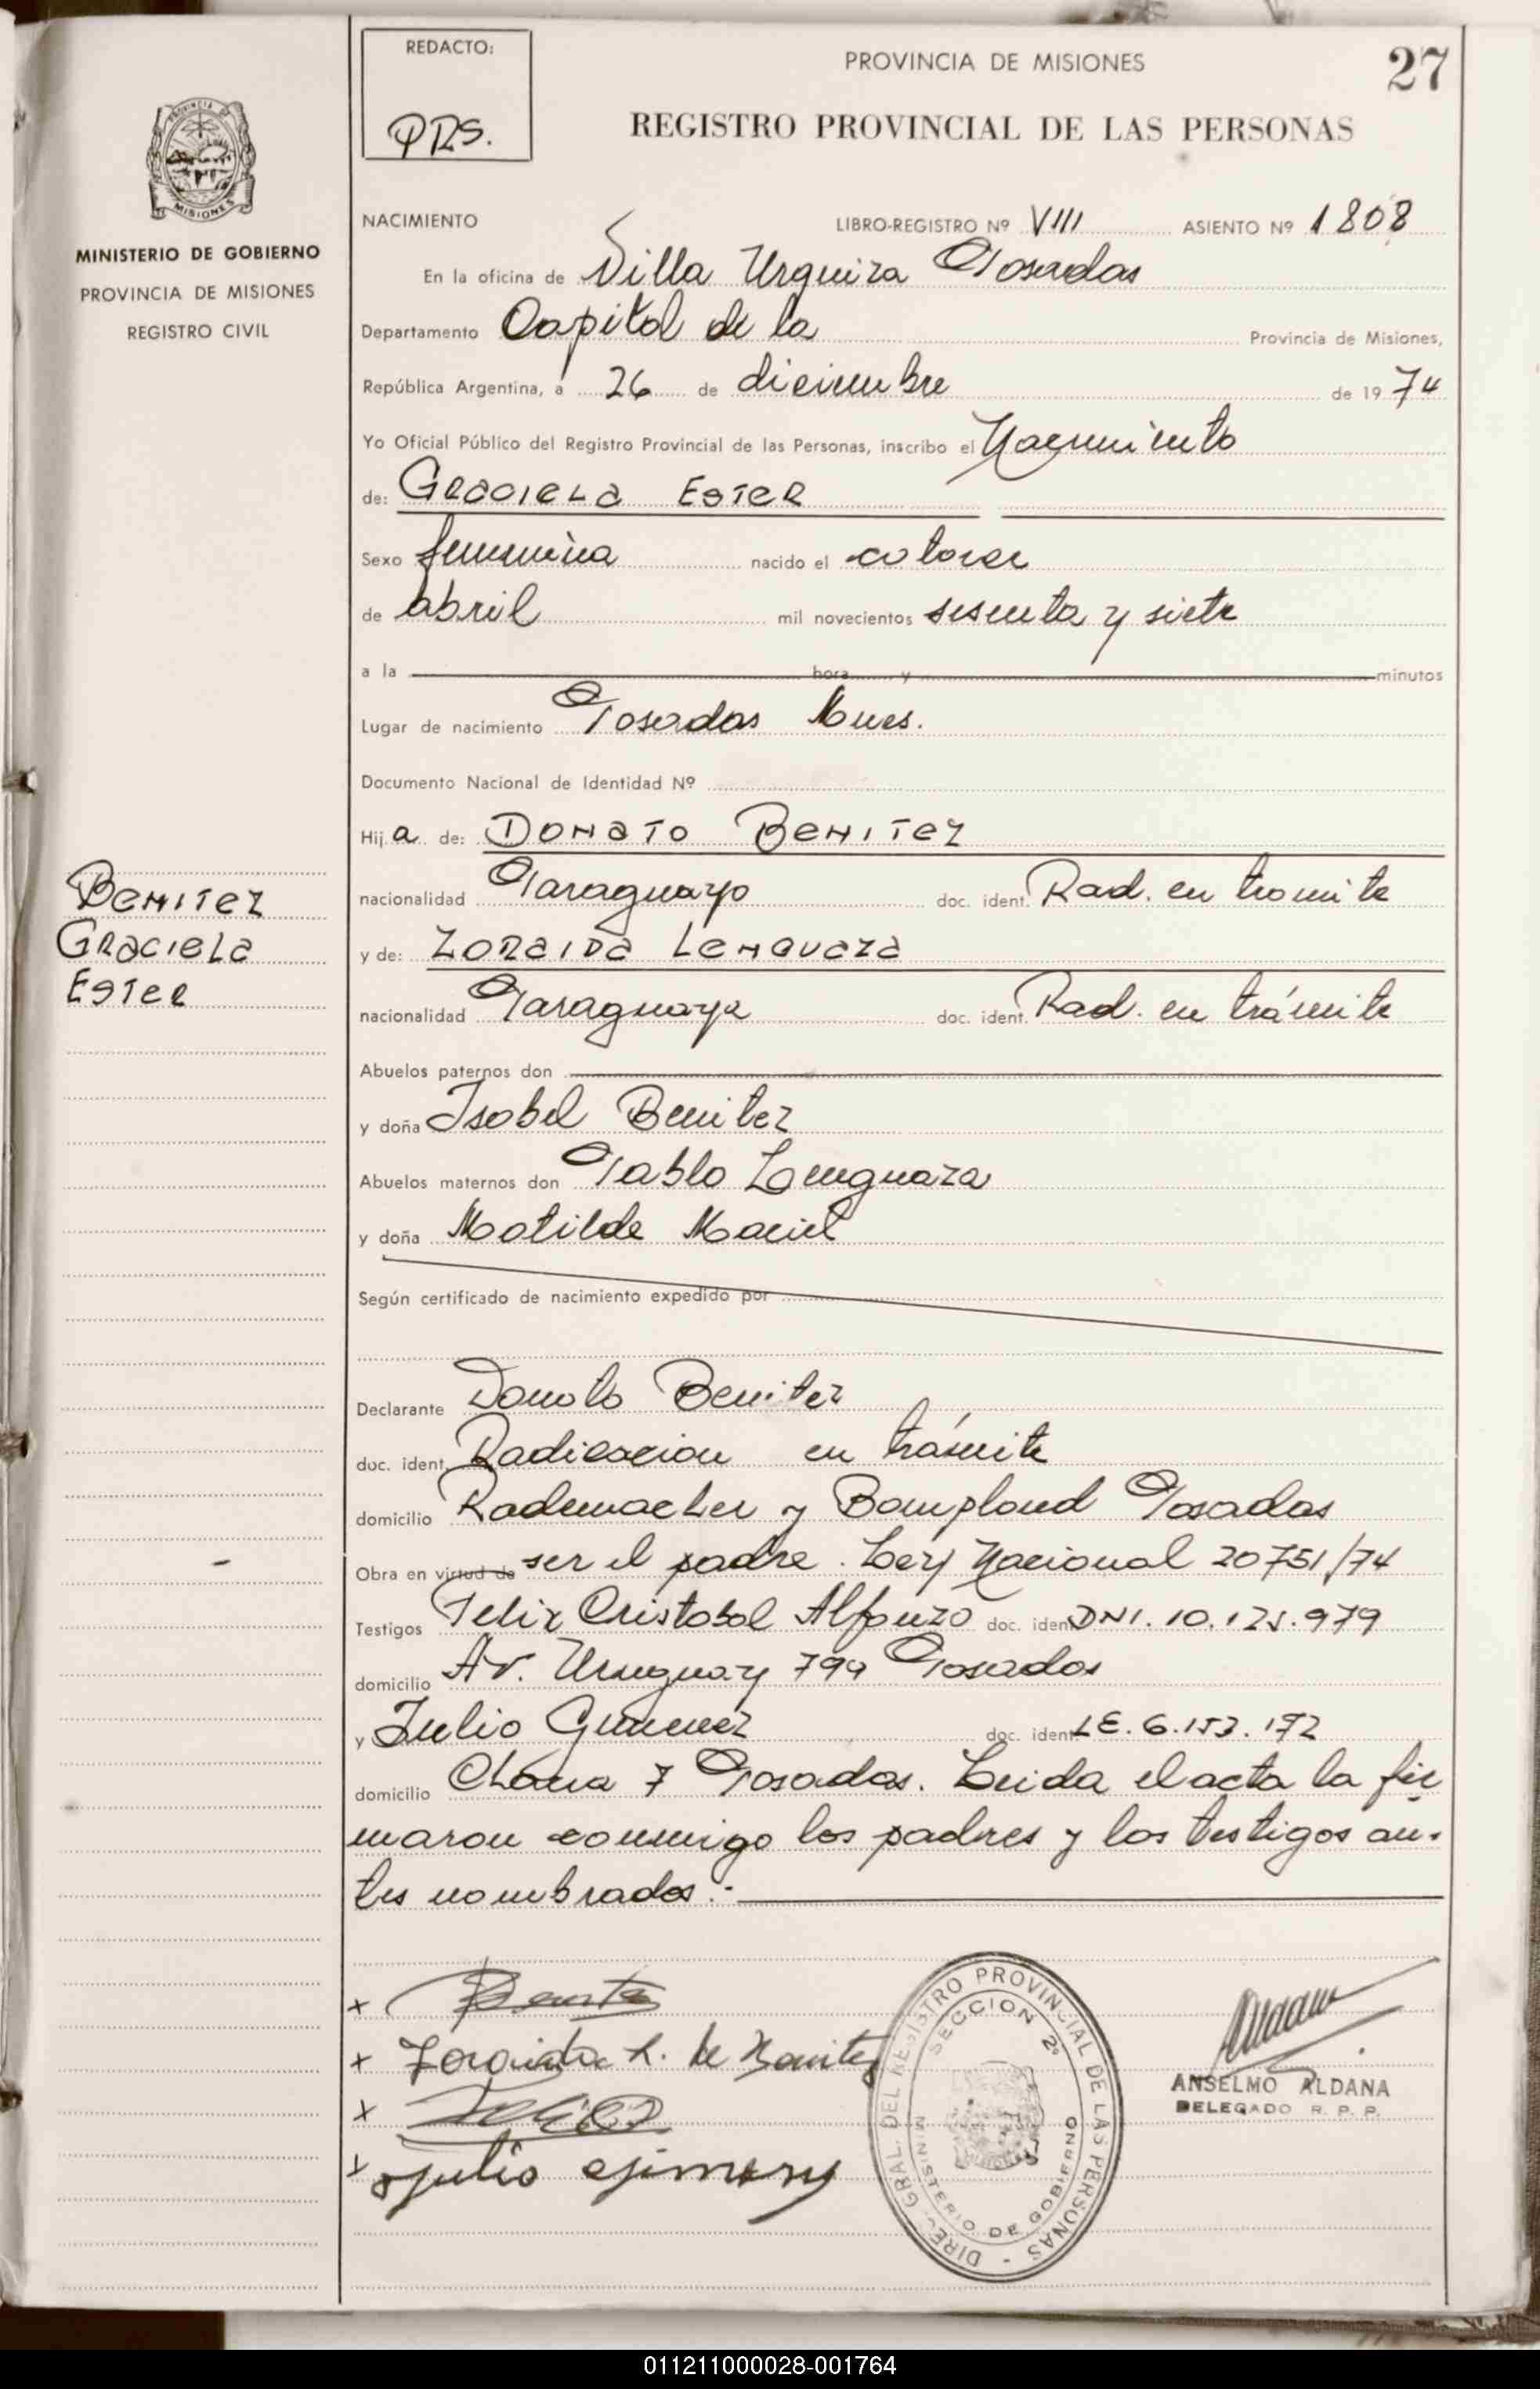 REDACTO:
PRS.
PROVINCIA DE MISIONES
27
REGISTRO PROVINCIAL DE LAS PERSONAS
MISIONES
MINISTERIO DE GOBIERNO
PROVINCIA DE MISIONES
REGISTRO CIVIL
NACIMIENTO LIBRO-REGISTRO Nº VIII ASIENTO Nº 1808
En la oficina de Villa Urquiza Posadas
Departamento Capital de la Provincia de Misiones,
República Argentina, á 26 de diciembre de 1974
Yo Oficial Público del Registro Provincial de las Personas, inscribo el Nacimiento
de: GRACIELA ESTER
Sexo femenina nacido el catorce
de abril mil novecientos sesenta y siete
a la hora y minutos
Lugar de nacimiento Posadas Mnes.
Documento Nacional de Identidad Nº
Hij a de: DONATO BENITEZ
nacionalidad Paraguayo doc. ident. Rad. en tramite
y de: ZORAIDA LENGUAZA
nacionalidad Paraguaya doc. ident. Rad. en trámite
BENITEZ
GRACIELA
ESTER
Abuelos paternos don
y doña Isabel Benitez
Abuelos maternos don Pablo Lenguaza
y doña Matilde Maciel
Según certificado de nacimiento expedido por
Declarante Donato Benitez
doc. ident. Radicacion en trámite
domicilio Rademacher y Bompland Posadas
Obra en virtud de ser el padre. Ley Nacional 20751/74
Testigos Felix Cristobal Alfonzo doc. ident DNI. 10.125.979
domicilio Av. Uruguay 799 Posados
y Julio Gimenez doc. ident LE. 6.153.192
domicilio Chacra 7 Posadas. Leida el acta la fir
maron conmigo los padres y los testigos an-
tes nombrados.-
x Benitez
x Zoraida L. de Benitez
x
x Julio Gimenez
DIREC. GRAL. DEL REGISTRO PROVINCIAL DE LAS PERSONAS -
SECCION 2º
MINISTERIO DE GOBIERNO
ANSELMO ALDANA
DELEGADO R. P. P.
011211000028-001764